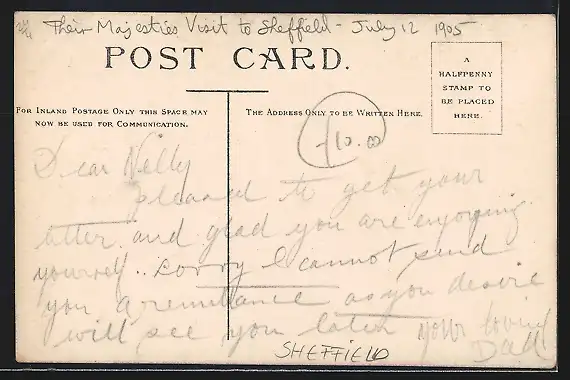 Their Majesties Visit to Sheffield - July 12 1905
POST CARD.
A
HALFPENNY
STAMP TO
BE PLACED
HERE.
FOR INLAND POSTAGE ONLY THIS SPACE MAY
NOW BE USED FOR COMMUNICATION.
THE ADDRESS ONLY TO BE WRITTEN HERE.
10.00
Dear Nelly
pleased to get your
letter and glad you are enjoying
yourself.. sorry I cannot send
you a remittance as you desire
will see you later your loving
Dad
SHEFFIELD